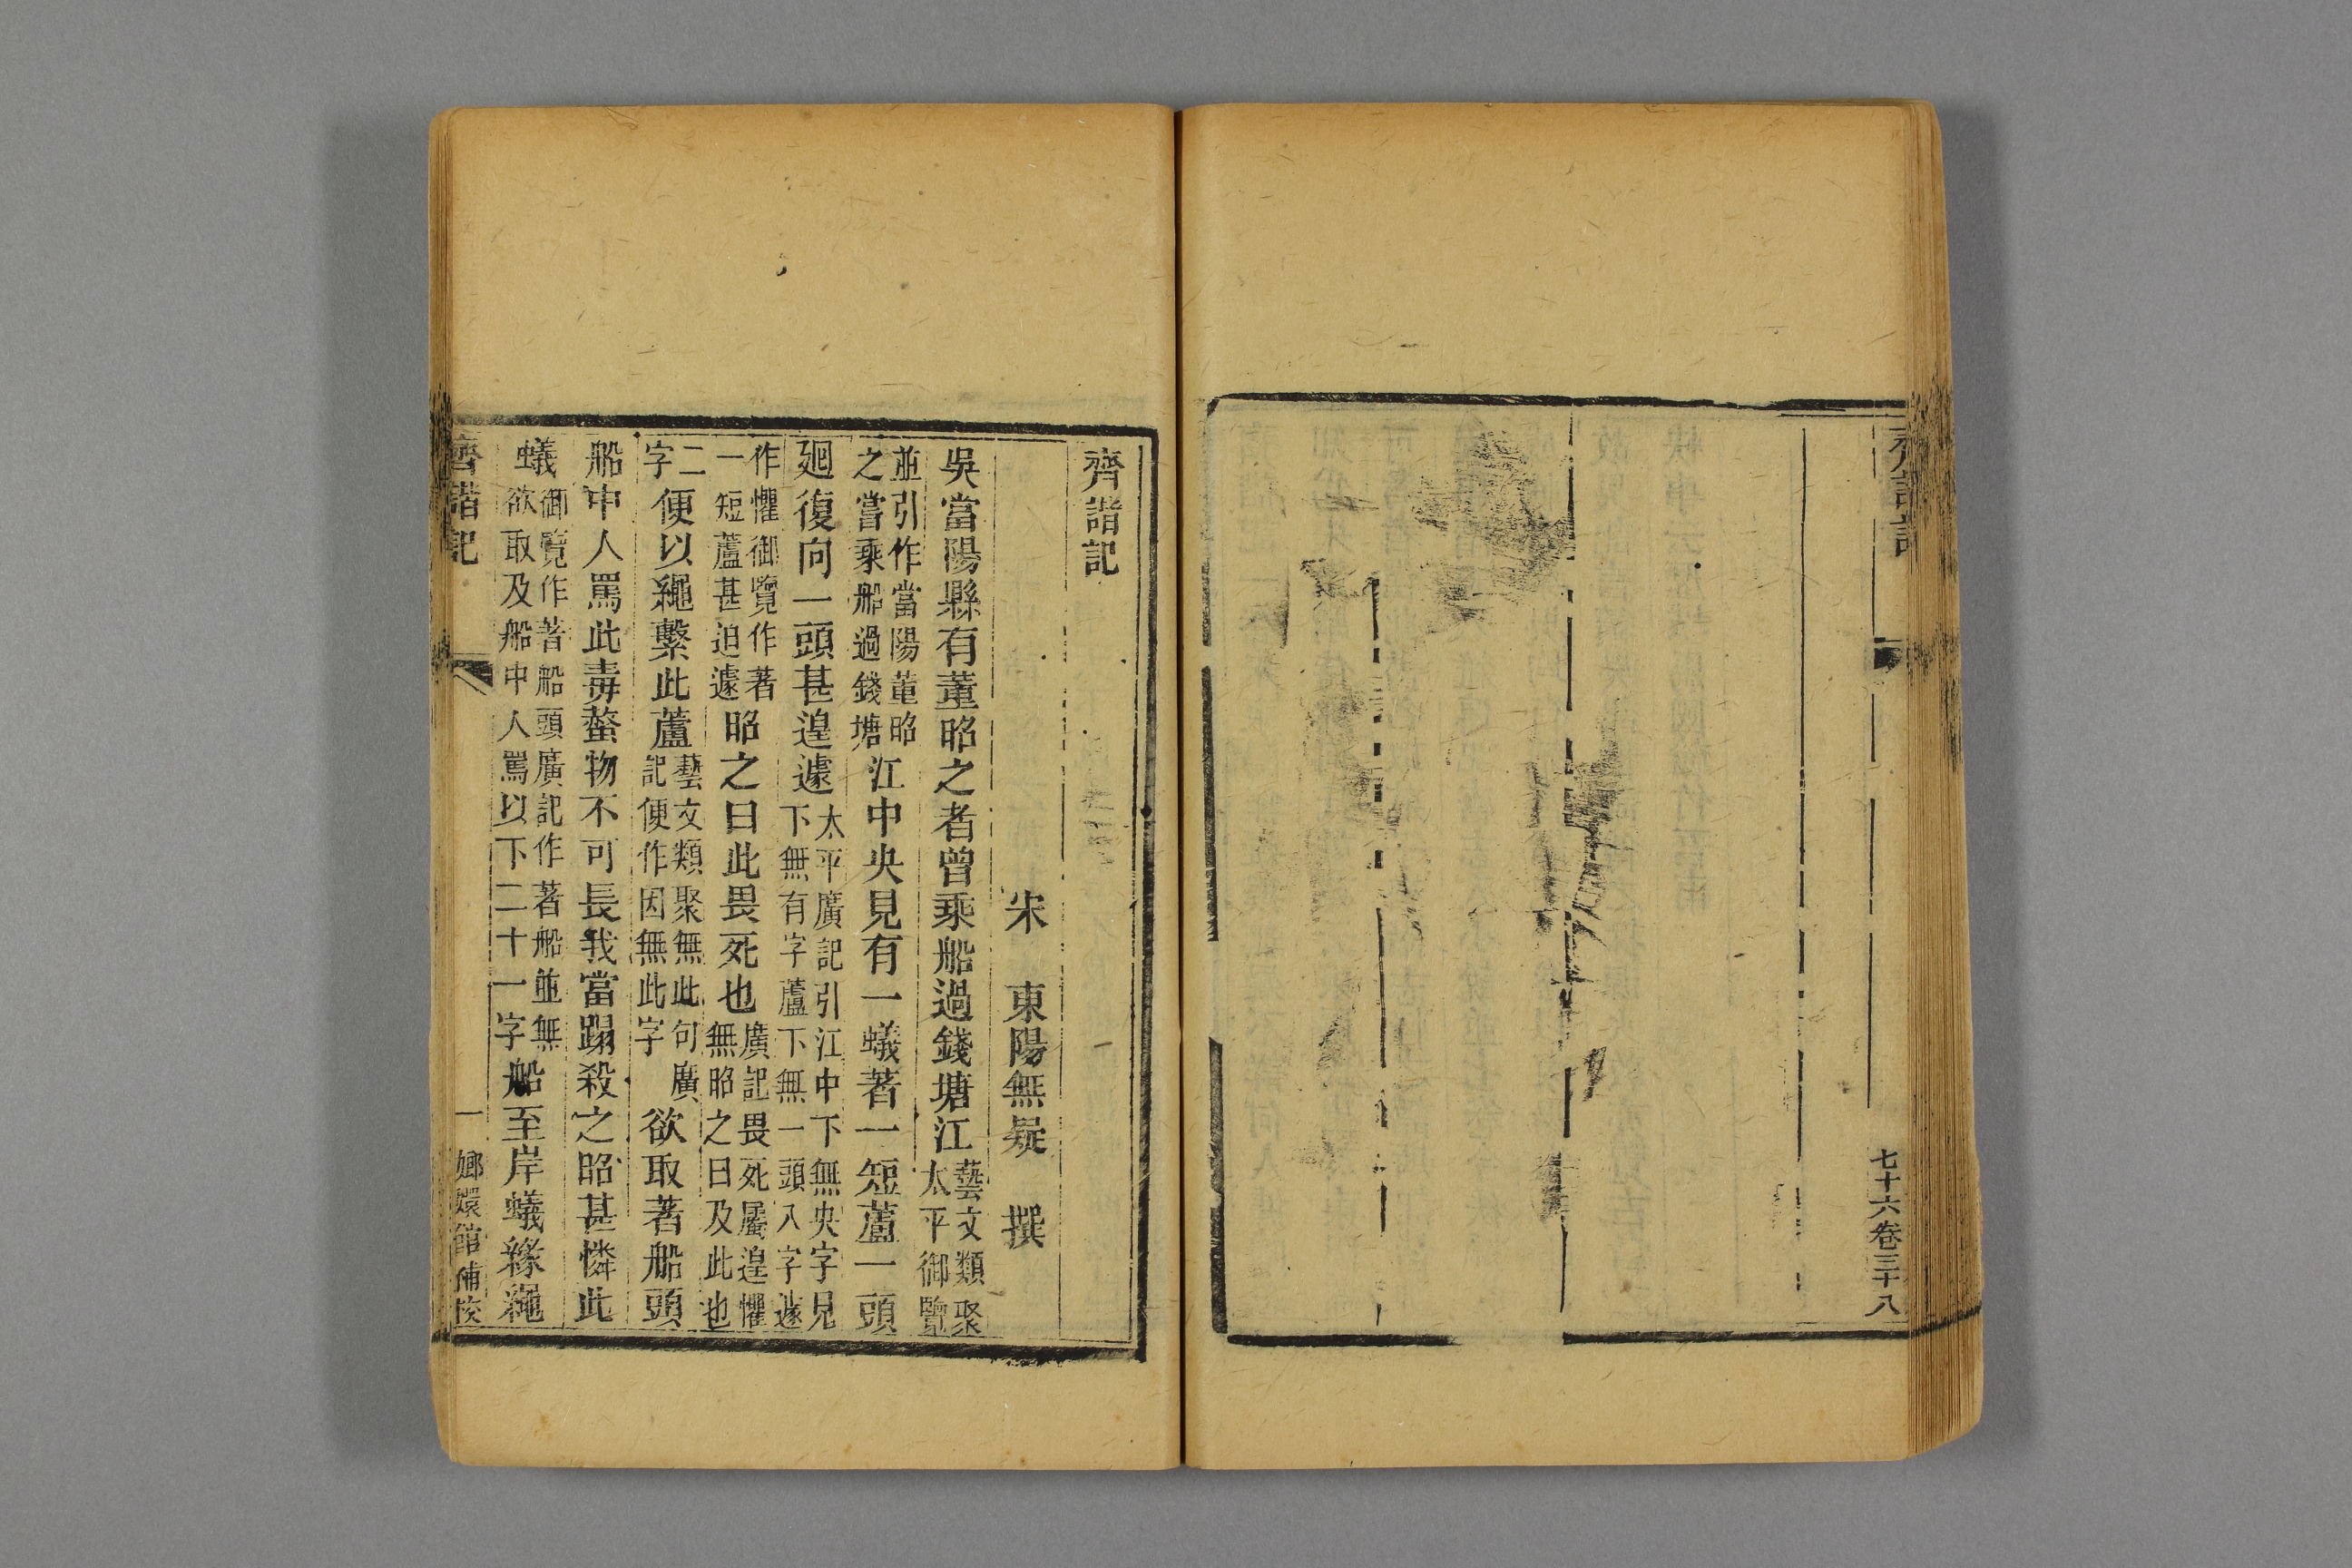 齊諧記
七十六卷三十八
齊諧記
宋 東陽無疑 撰
吳當陽縣有董昭之者曾乘船過錢塘江藝文類聚太平御覽
並引作當陽董昭之嘗乘船過錢塘江中央見有一蟻著一短蘆一頭
廻復向一頭甚遑遽太平廣記引江中下無央字見下無有字蘆下無一頭入字遽
作懼御覽作著一短蘆甚迫遽昭之曰此畏死也廣記畏死屬遑懼無昭之曰及此也
二字便以繩繫此蘆藝文類聚無此句廣記便作因無此字欲取著船頭
船中人罵此毒螫物不可長我當蹋殺之昭甚憐此
蟻御覽作著船頭廣記作著船並無欲取及船中人罵以下二十一字船至岸蟻緣繩
齊諧記
一
嫏嬛館補校